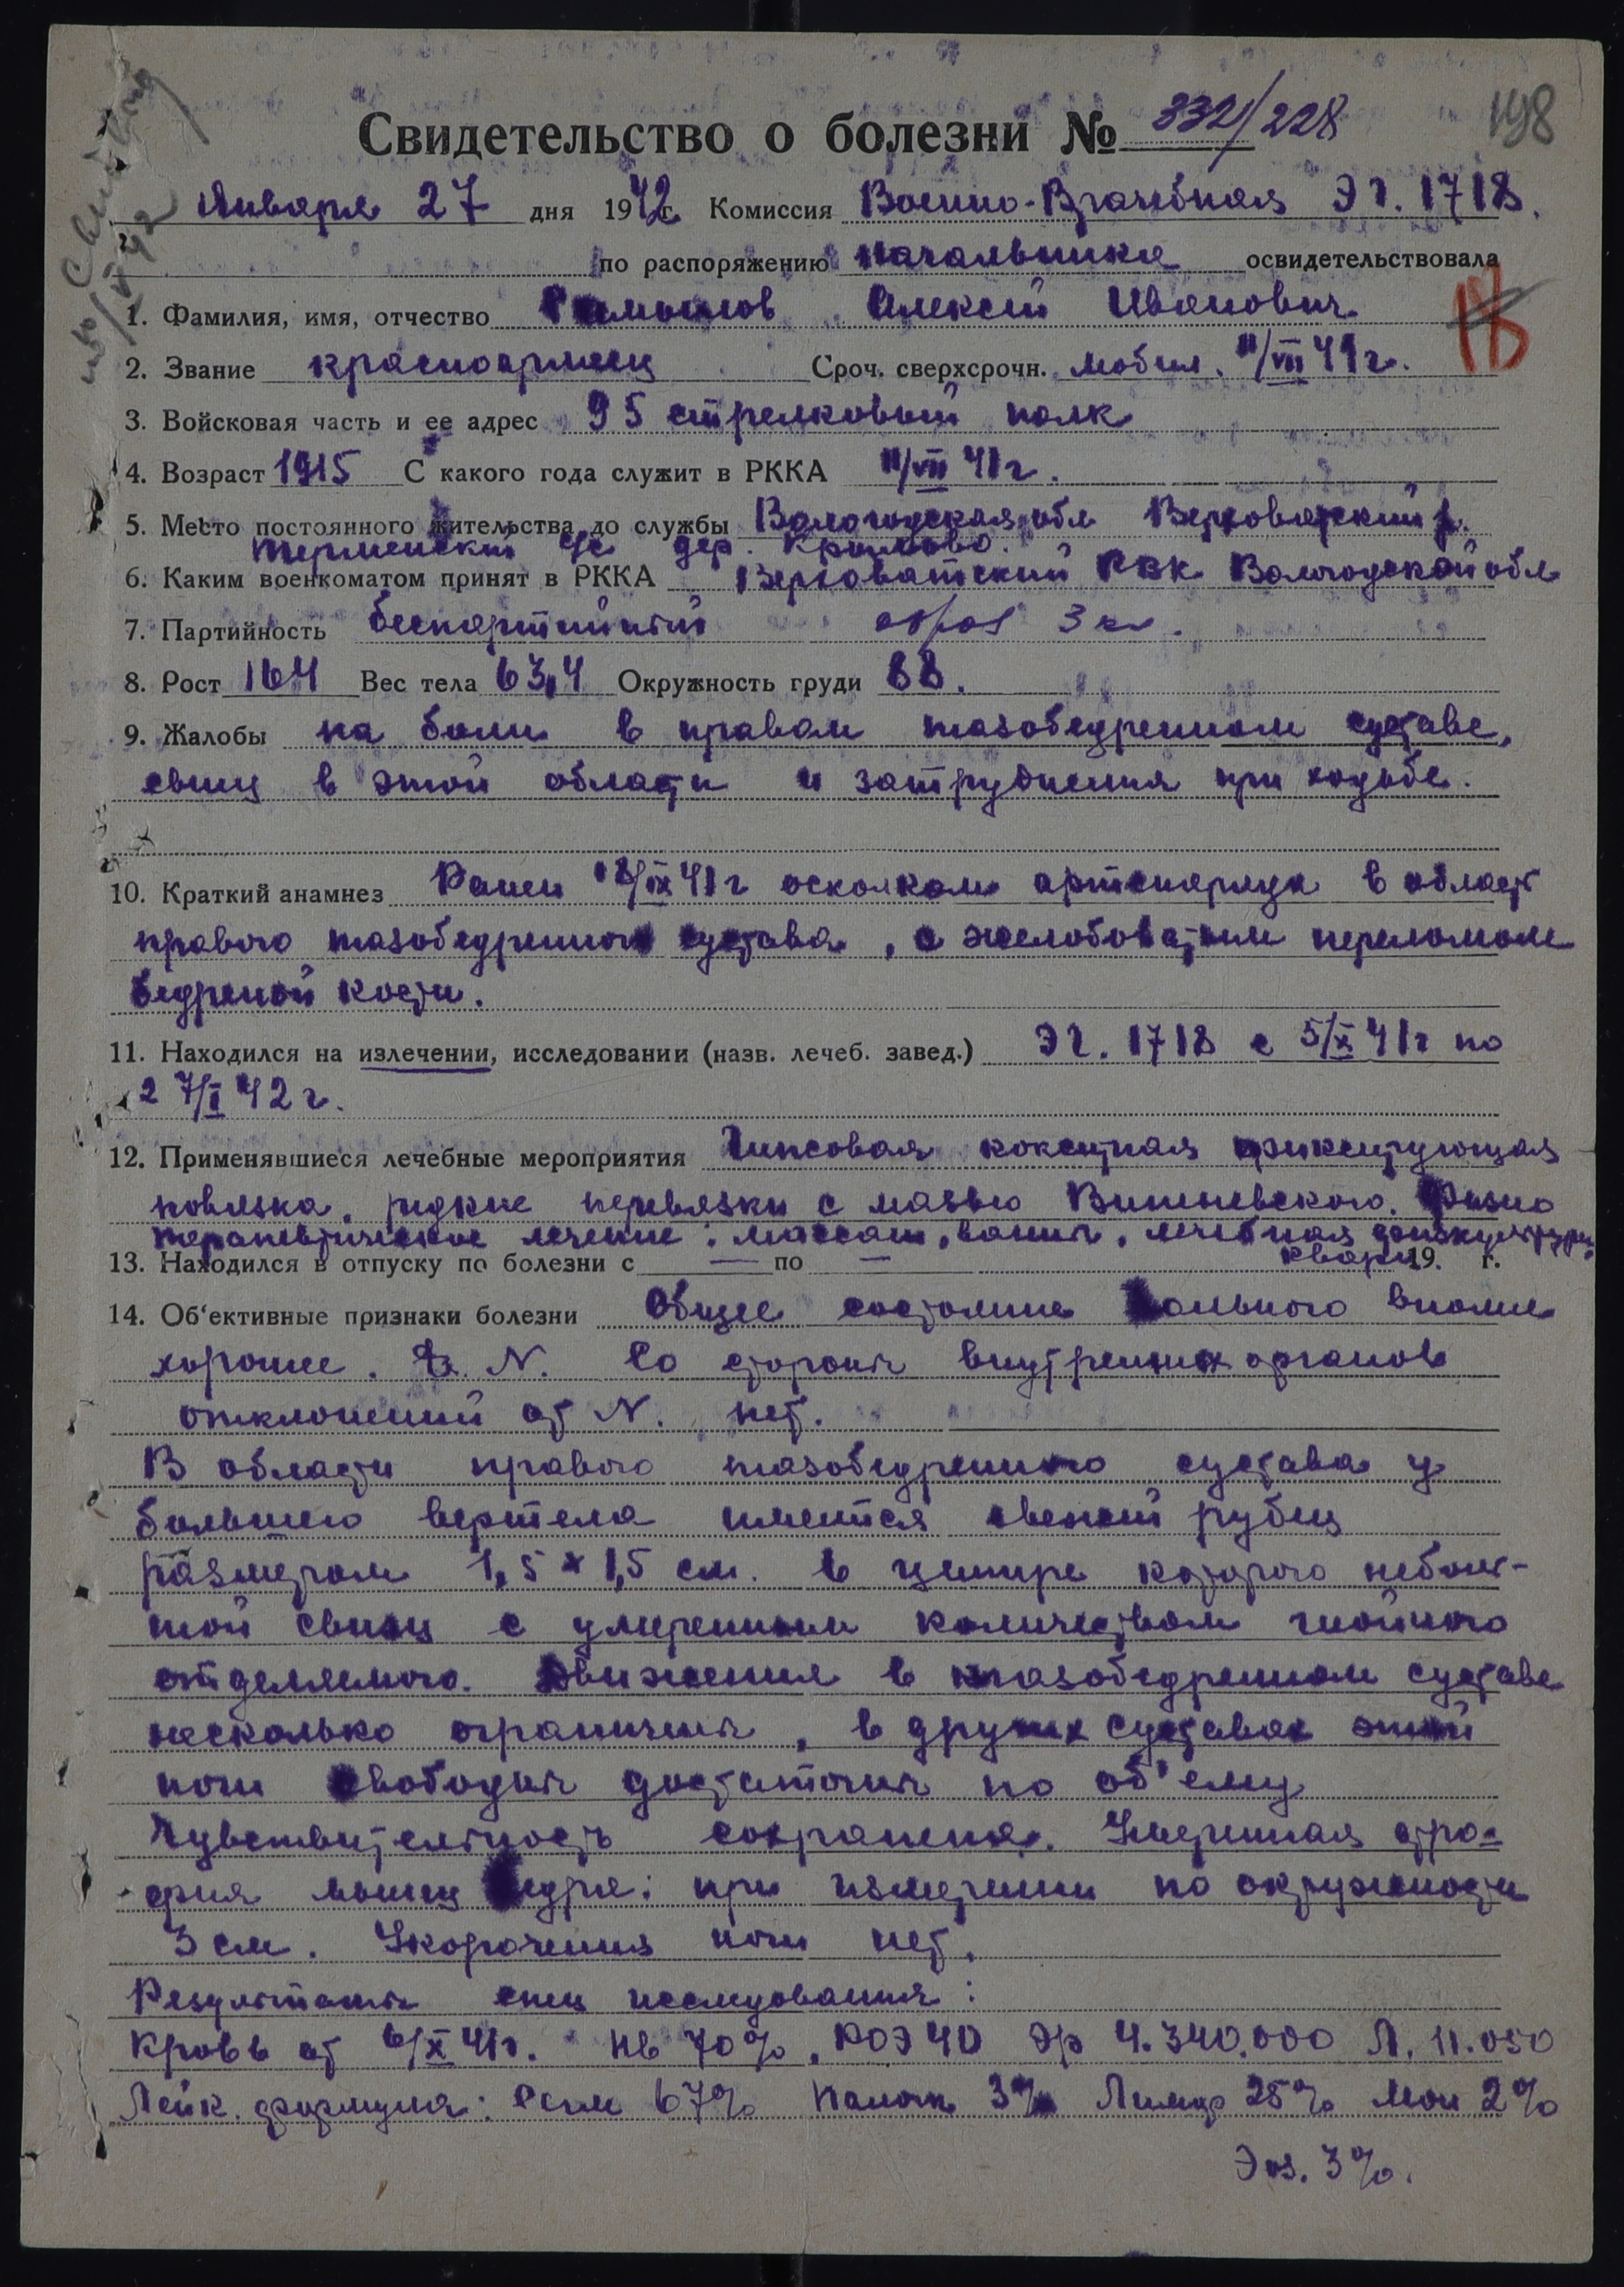 198
Свидетельство о болезни № 332/228
Января 27 дня 1942 г. Комиссия Военно-Врачебная ЭГ. 1718.
по распоряжению начальника освидетельствовала
1. Фамилия, имя, отчество Алексей Иванович.
2. Звание красноармеец Сроч. сверхсрочн. мобил. 11/VII 41г.
3. Войсковая часть и ее адрес 95 стрелковый полк
4. Возраст 1915 С какого года служит в РККА 11/VII 41г.
5. Место постоянного жительства до службы Вологодская обл Верховажский р.
Терменский с/с дер.
6. Каким военкоматом принят в РККА Верховажский РВК Вологодской обл
7. Партийность беспартийный образ 3 кл.
8. Рост 164 Вес тела 63,4 Окружность груди 88.
9. Жалобы на боли в правом тазобедренном суставе,
свищ в этой области и затруднения при ходьбе.
10. Краткий анамнез Ранен 18/IX 41г осколком артснаряда в област
правого тазобедренного сустава, с желобоватым переломом
бедреной кости.
11. Находился на излечении, исследовании (назв. лечеб. завед.) ЭГ. 1718 с 5/X 41г по
27/I 42г.
12. Применявшиеся лечебные мероприятия Гипсовая кокситная фиксирующая
повязка, редкие перевязки с мазью Вишневского. Физио
терапевтическое лечение: массаж, ванны, лечебная физкультура,
кварц
13. Находился в отпуску по болезни с — по — 19 г.
14. Об'ективные признаки болезни Общее состояние больного вполне
хорошее. t° N. Со стороны внутренних органов
отклонений от N. нет.
В области правого тазобедренного сустава у
большего вертела имеется свежий рубец
размером 1,5 х 1,5 см. в центре которого неболь-
шой свищ с умеренным количеством гнойного
отделяемого. Движения в тазобедренном суставе
несколько ограничены, в других суставах этой
ноги свободны достаточны по об'ему
Чувствительность сохранена. Умеренная атро-
фия мышц бедра: при измерении по окружности
3 см. Укорочения ноги нет.
Результаты спец исследования:
Кровь от 6/X 41г. Нв 70%, РОЭ 40 Эр 4.340.000 Л. 11.050
Лейк. формула: Сегм 67% Палочк 3% Лимф 25% Мон 2%
Эоз. 3%.